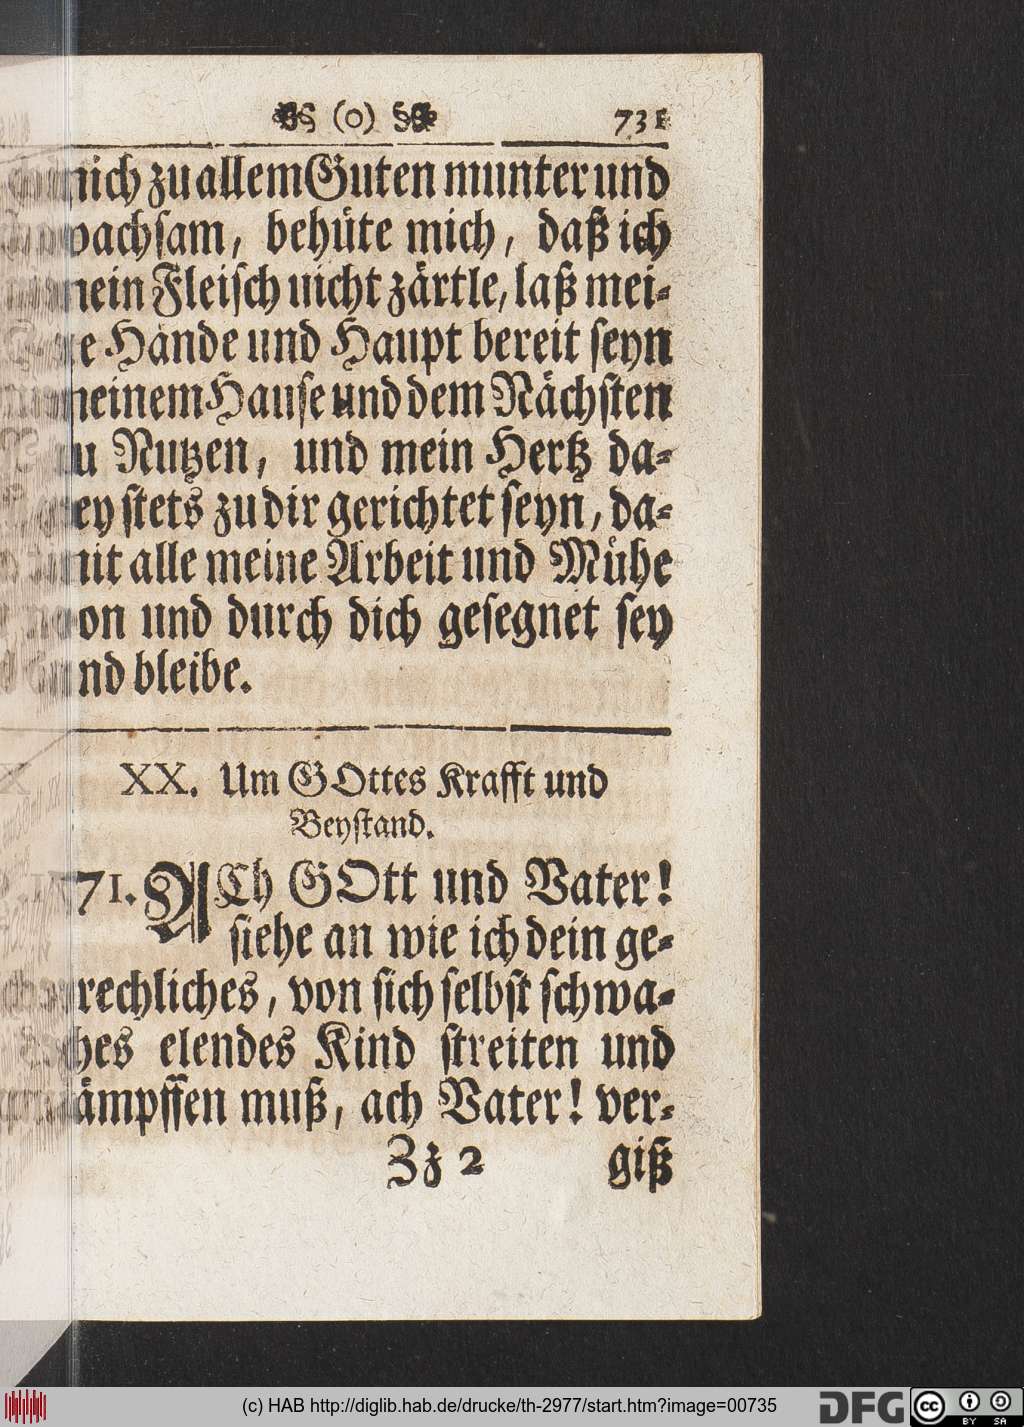 (o) 731
mich zu allem Guten munter und
wachsam, behüte mich, daß ich
mein Fleisch nicht zärtle, laß mei-
ne Hände und Haupt bereit seyn
meinem Hause und dem Nächsten
zu Nutzen, und mein Hertz da-
bey stets zu dir gerichtet seyn, da-
mit alle meine Arbeit und Mühe
von und durch dich gesegnet sey
und bleibe.
XX. Um GOttes Krafft und
Beystand.
71. ACh GOtt und Vater!
siehe an wie ich dein ge-
rechliches, von sich selbst schwa-
ches elendes Kind streiten und
kämpffen muß, ach Vater! ver-
Zz 2 giß
(c) HAB http://diglib.hab.de/drucke/th-2977/start.htm?image=00735
DFG cc BY SA